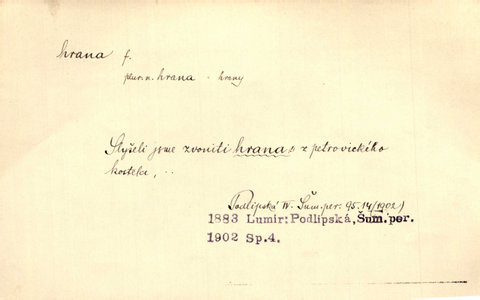 hrana f.
plur. n. hrana - hrany
Slyšeli jsme zvoniti hrana z petrovického
kostela, ..
Podlipská IV. Šum. per. 95.14 (1902)
1883 Lumír: Podlipská, Šum. per.
1902 Sp.4.